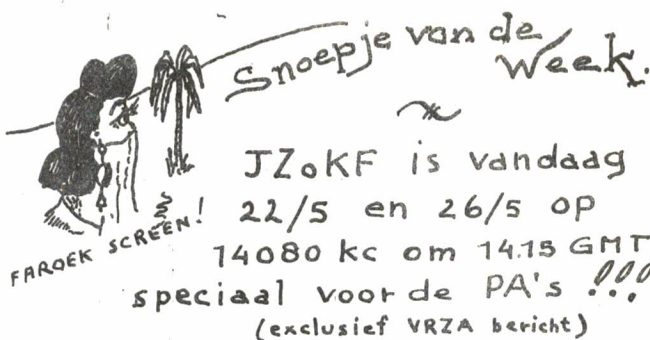 Snoepje van de
Week.
JZoKF is vandaag
22/5 en 26/5 op
14080 kc om 14.15 GMT
speciaal voor de PA's !!!
(exclusief VRZA bericht)
FAROEK SCREEN!